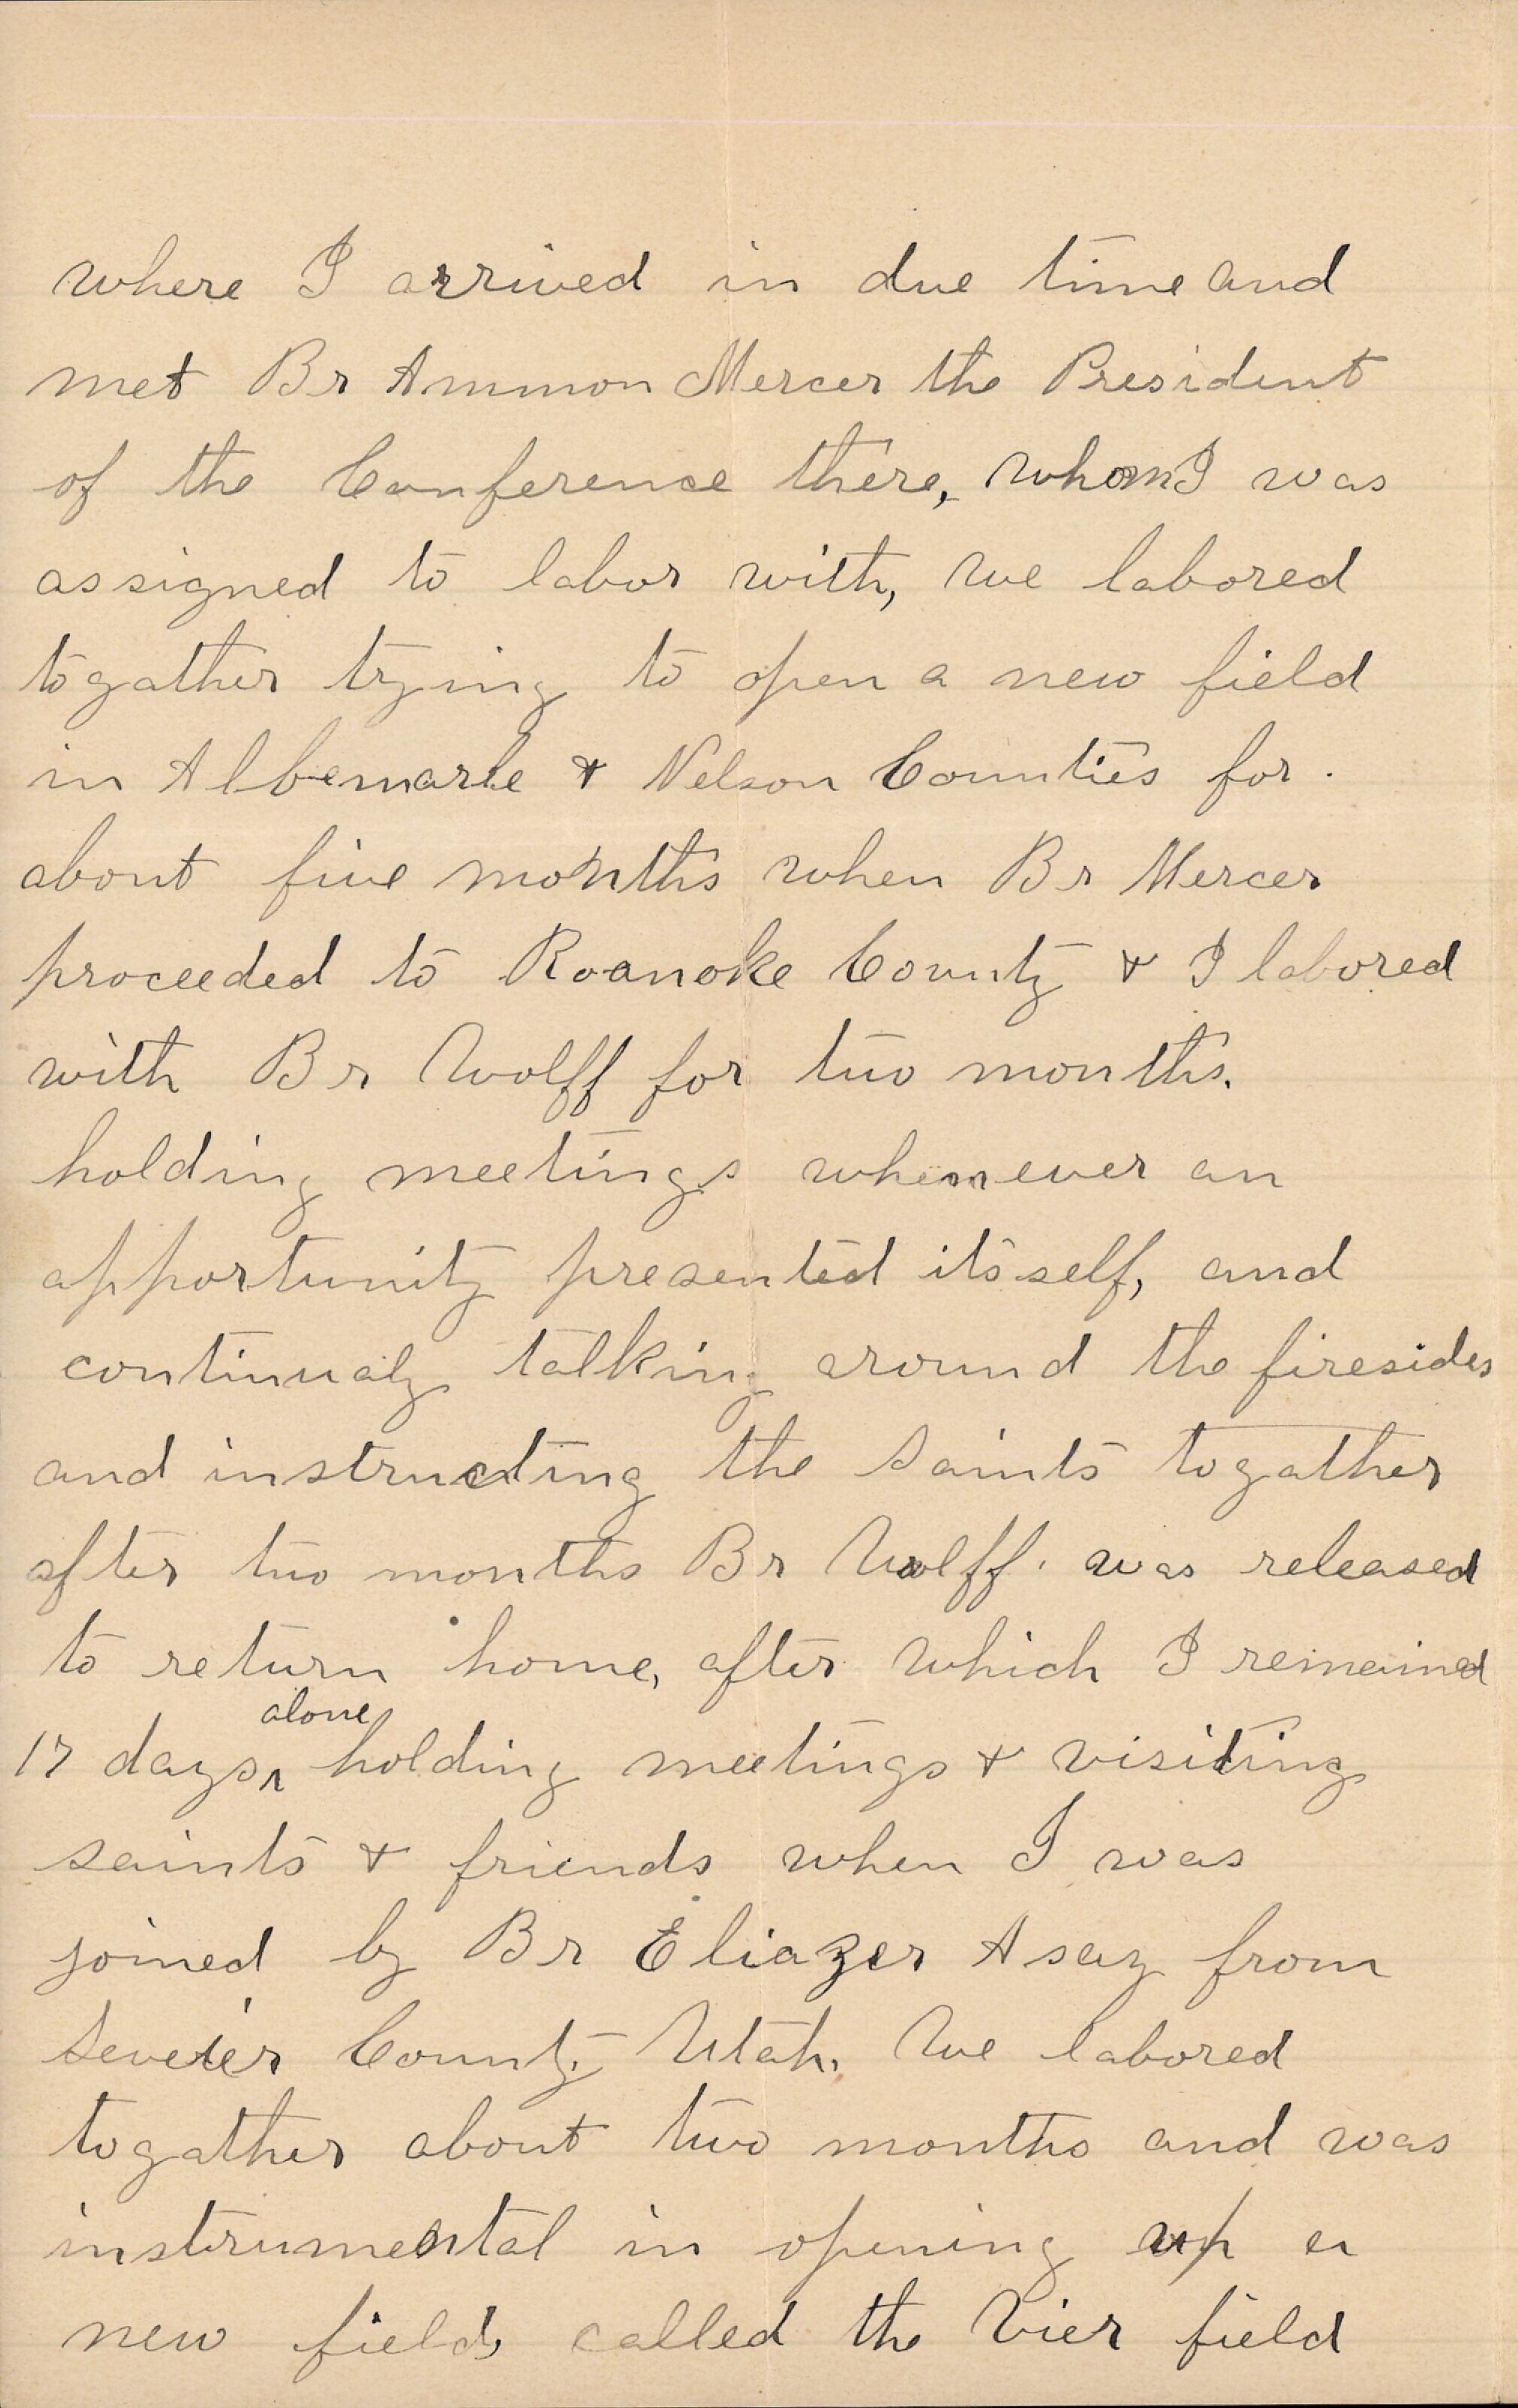 where I arrived in due time and
met Br Ammon Mercer the President
of the Conference there, whom I was
assigned to labor with, we labored
togather trying to open a new field
in Albemarle & Nelson Counties for.
about five months when Br Mercer
proceeded to Roanoke County & I labored
with Br Wolff for two months.
holding meetings whenever an
opportunity presented itsself, and
continualy talking around the firesides
and instructing the saints togather
after two months Br Wolff. was released
to return home, after which I remained
17 days alone holding meetings & visiting
saints & friends when I was
joined by Br Eliazer Asay from
Seveier County, Utah. We labored
togather about two months and was
instrumental in opening up a
new field, called the Vier field